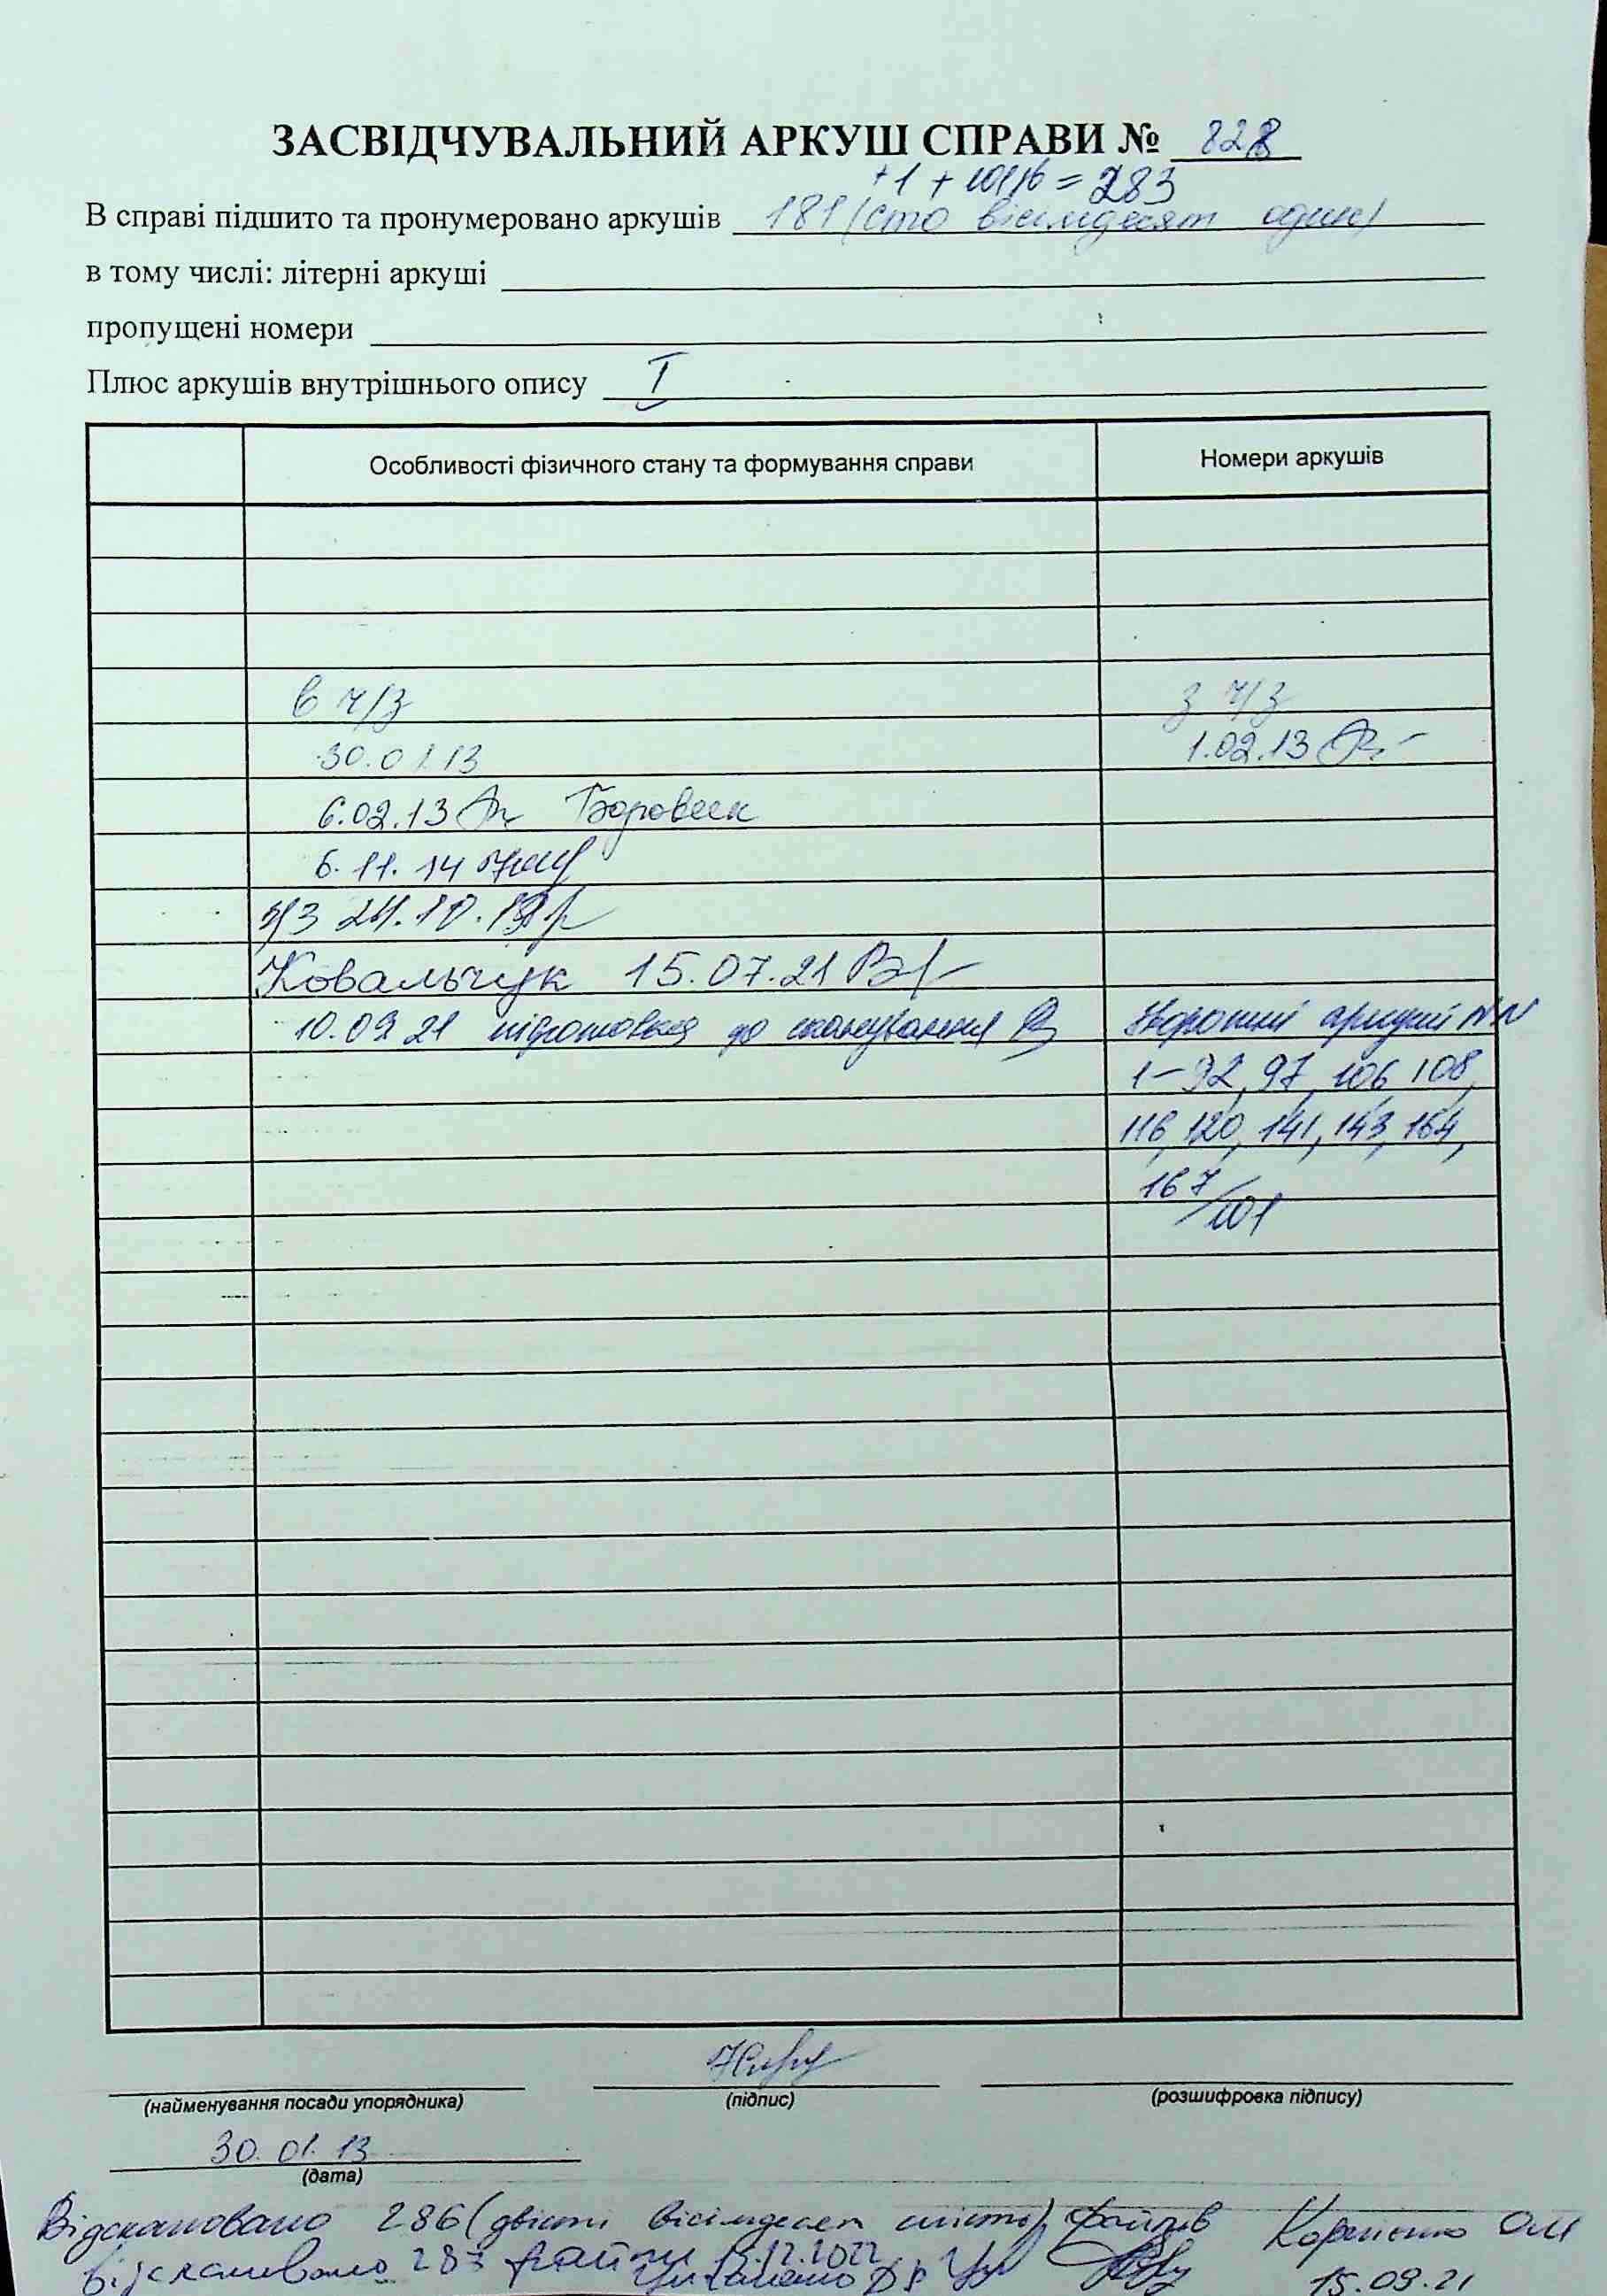 ЗАСВІДЧУВАЛЬНИЙ АРКУШ СПРАВИ № 828
+1 + 101 = 283
В справі підшито та пронумеровано аркушів 181 (сто вісімдесят один)
в тому числі: літерні аркуші
пропущені номери
Плюс аркушів внутрішнього опису I
Особливості фізичного стану та формування справи Номери аркушів
в ч/з з ч/з
30.01.13 1.02.13
6.02.13 Боровеек
6.11.14
ч/з 24.10.19
Ковальчук 15.07.21
10.09.21 підготовка до сканування зворотні аркушів NN
1-92, 97, 106, 108,
116, 120, 141, 143, 164,
167/101
(найменування посади упорядника) (підпис) (розшифровка підпису)
30.01.13
(дата)
Відскановано 286 (двісті вісімдесят шість) файлів Корнієнко ОМ
відскановано 287 файли 15.12.2022
15.09.21